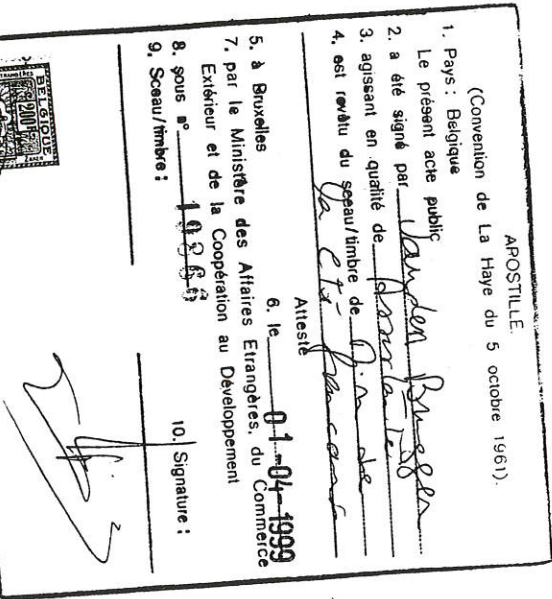 APOSTILLE.
(Convention de La Haye du 5 octobre 1961).
1. Pays: Belgique
Le présent acte public
2. a été signé par Vanden Brussen
3. agissant en qualité de
4. est revêtu du sceau/timbre de
Attesté
5. à Bruxelles
6. le 01-04-1999
7. par le Ministère des Affaires Etrangères, du Commerce
Extérieur et de la Coopération au Développement
8. sous n°
9. Sceau/timbre:
10. Signature:
BELGIQUE
200